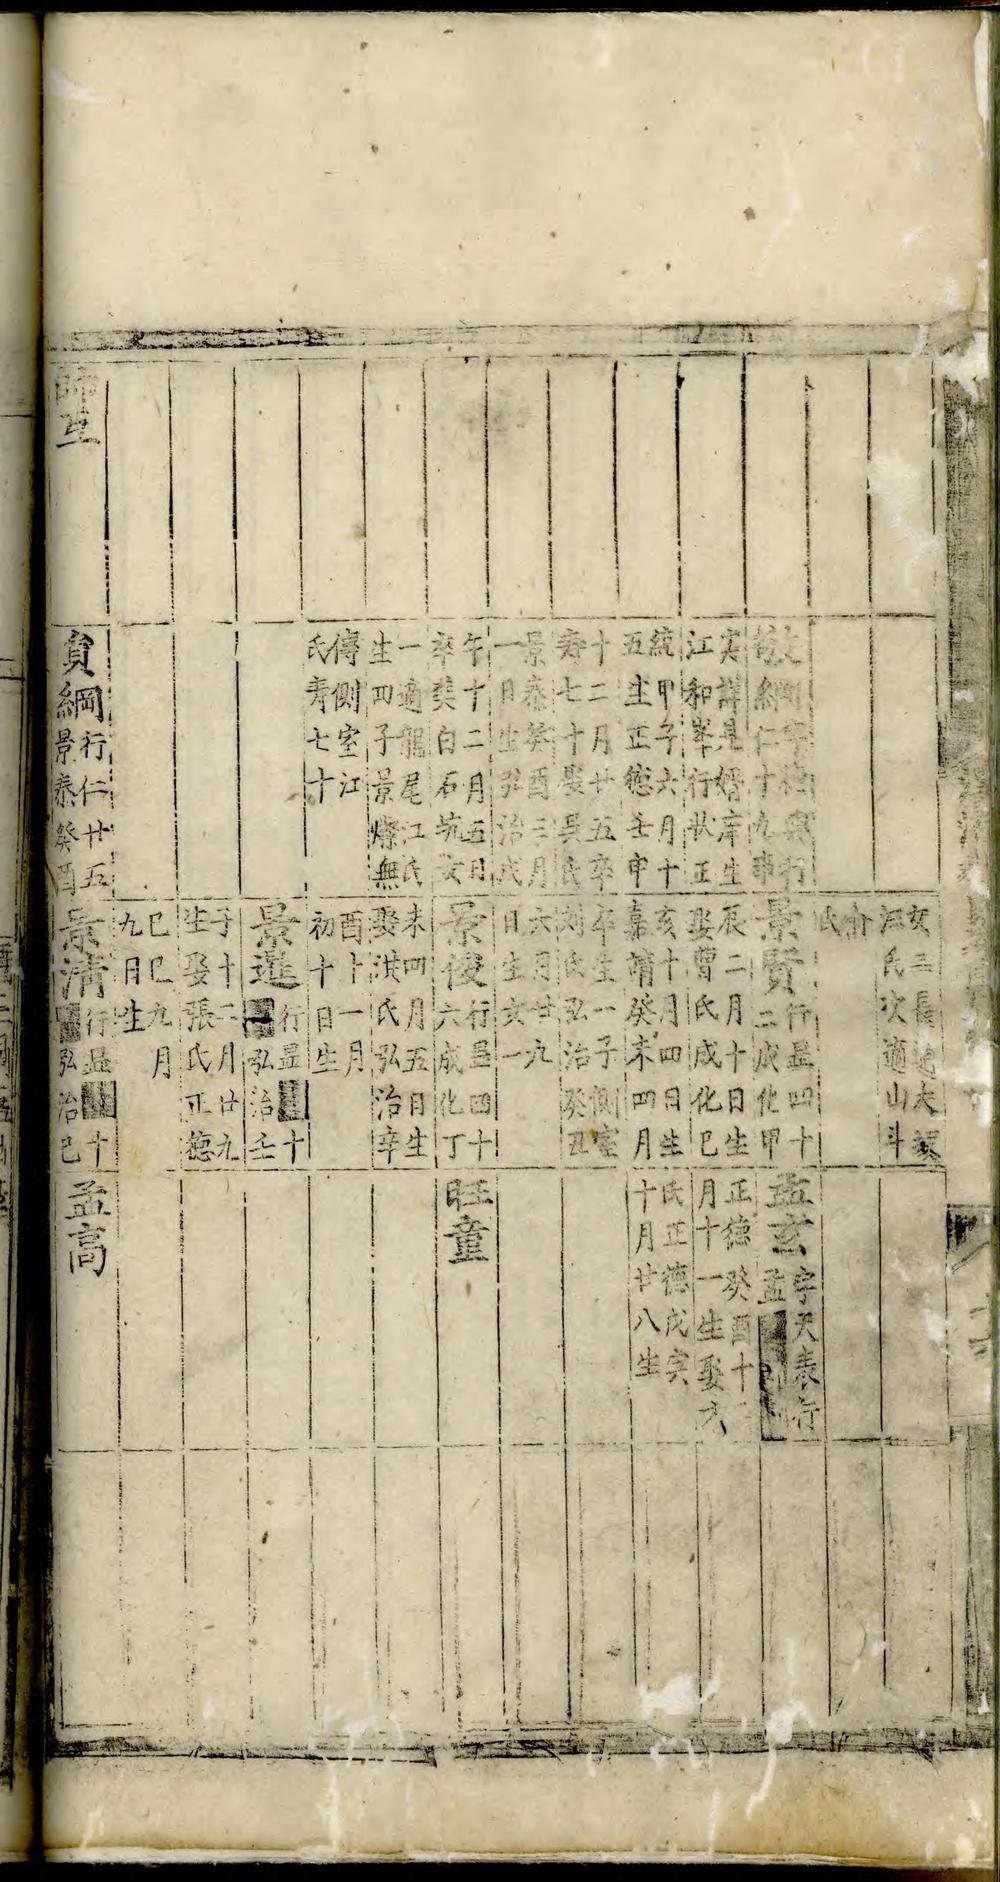 師生
文綱行格與行
實詳見婚産生
江和峯行狀正
統甲子六月十
五生正德壬申
十二月廿五卒
壽七十娶吳氏
景泰癸酉三月
一日生弘治戊
午十二月五日
卒葬白石坑女
一適龍尾江氏
生四子景燦無
傳側室江
氏壽七十
貟綱
行仁廿五
景泰癸酉
女三長適夫溪
江氏次適山斗
俞
氏
景賢
行昷四十
二成化甲
辰二月十日生
娶曹氏成化己
亥十月四日生
嘉靖癸未四月
卒生一子側室
刘氏弘治癸丑
六月廿九
日生亥一
景俊
行昷四十
六成化丁
未四月五日生
娶洪氏弘治辛
酉十一月
初十日生
景進
行昷 十
弘治壬
子十二月廿九
生娶張氏正德
己巳九月
九日生
景清
行昷 十
弘治己
孟玄
字天表行
孟
正德癸酉十二
月十一生娶
氏正德戊寅
十月廿八生
旺童
孟高